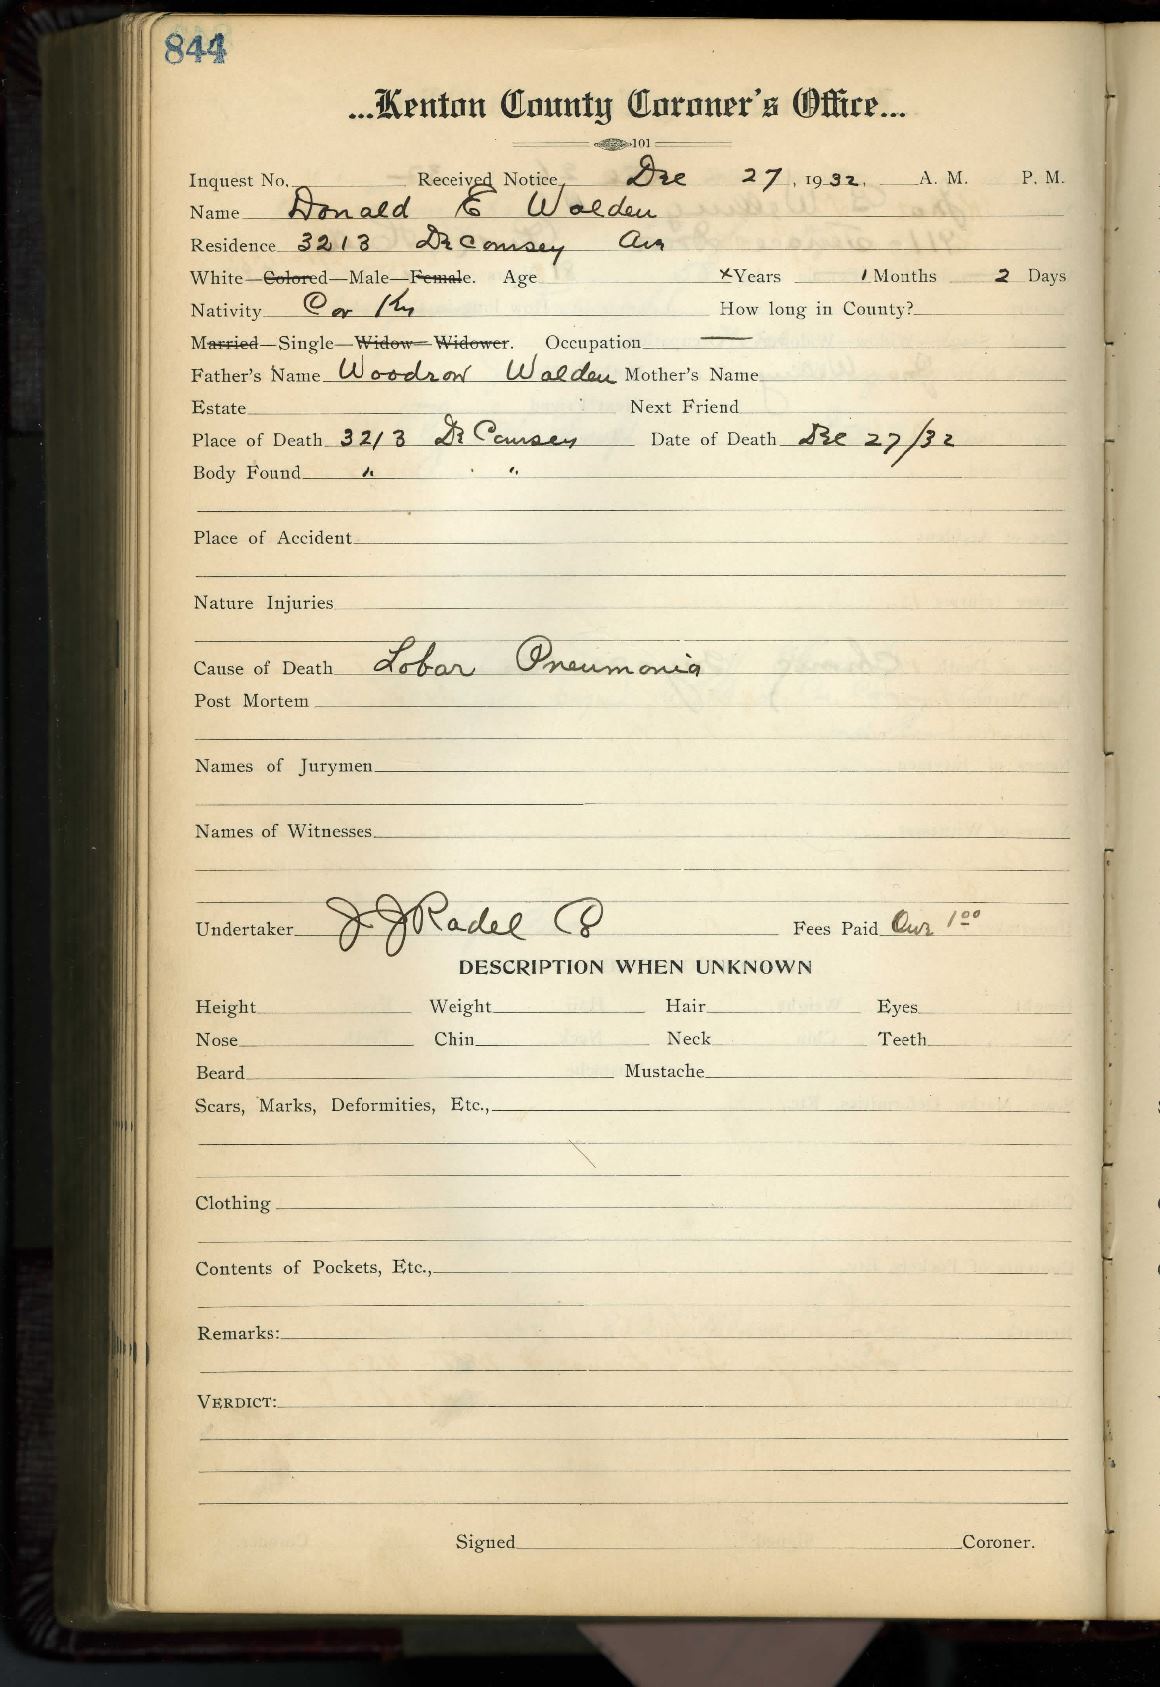 844
...Kenton County Coroner's Office...
101
Inquest No. Received Notice, Dec 27, 1932, A. M. P. M.
Name Donald E Walden
Residence 3213 DeCoursey Ave
White—Colored—Male—Female. Age xYears 1 Months 2 Days
Nativity Cov Ky How long in County?
Married—Single—Widow—Widower. Occupation —
Father's Name Woodrow Walden Mother's Name
Estate Next Friend
Place of Death 3213 DeCoursey Date of Death Dec 27/32
Body Found " "
Place of Accident
Nature Injuries
Cause of Death Lobar Pneumonia
Post Mortem
Names of Jurymen
Names of Witnesses
Undertaker J J Radel Co Fees Paid 1 00
DESCRIPTION WHEN UNKNOWN
Height Weight Hair Eyes
Nose Chin Neck Teeth
Beard Mustache
Scars, Marks, Deformities, Etc.,
Clothing
Contents of Pockets, Etc.,
Remarks:
VERDICT:
Signed Coroner.